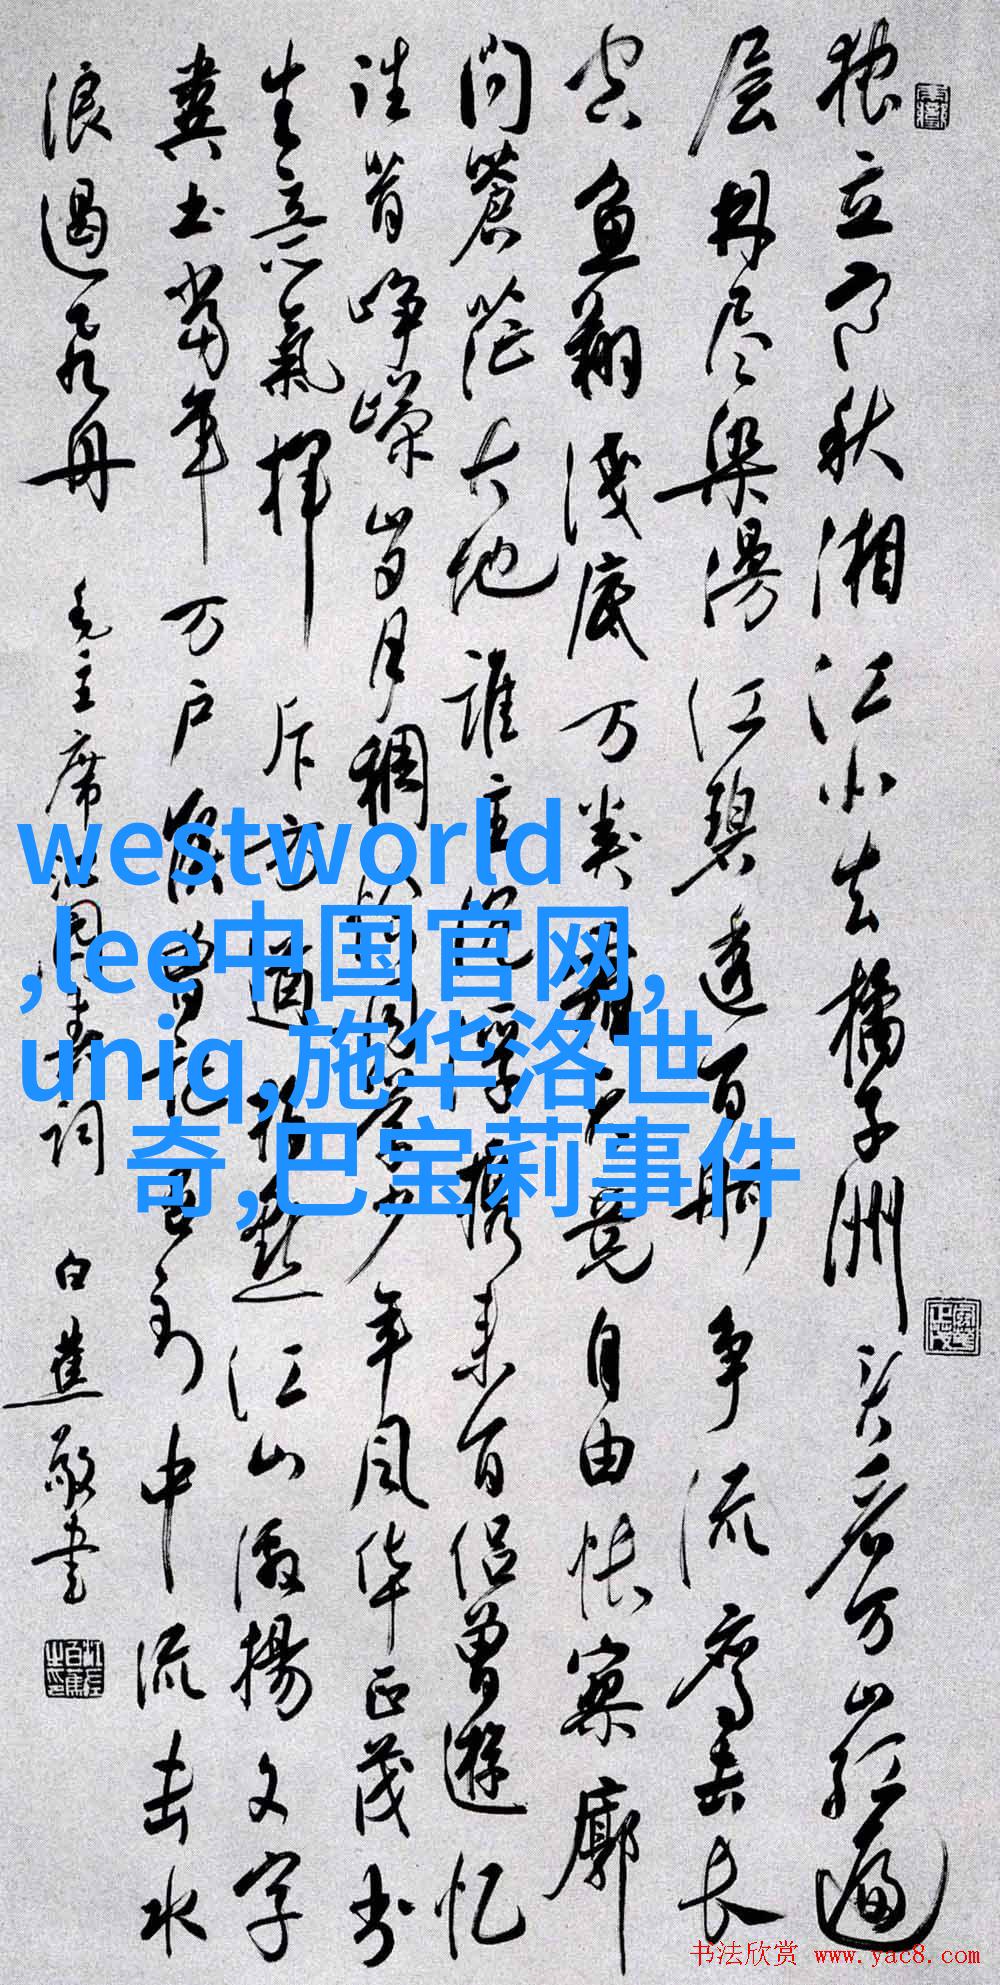 独立寒秋湘江北去橘子洲头看万山红遍
层林尽染漫江碧透百舸争流鹰击长
空鱼翔浅底万类霜天竞自由怅寥廓
问蒼茫大地谁主沉浮携来百侣曾遊忆
往昔峥嵘岁月稠恰同学少年风华正茂书
生意氣挥斥方遒指点江山激揚文字
粪土当年万户侯曾记否到中流击水
浪遏飞舟 毛主席沁园春词 白蕉敬书
westworld
,lee中国官网,
uniq,施华洛世
奇,巴宝莉事件
书法欣赏 www.yac8.com